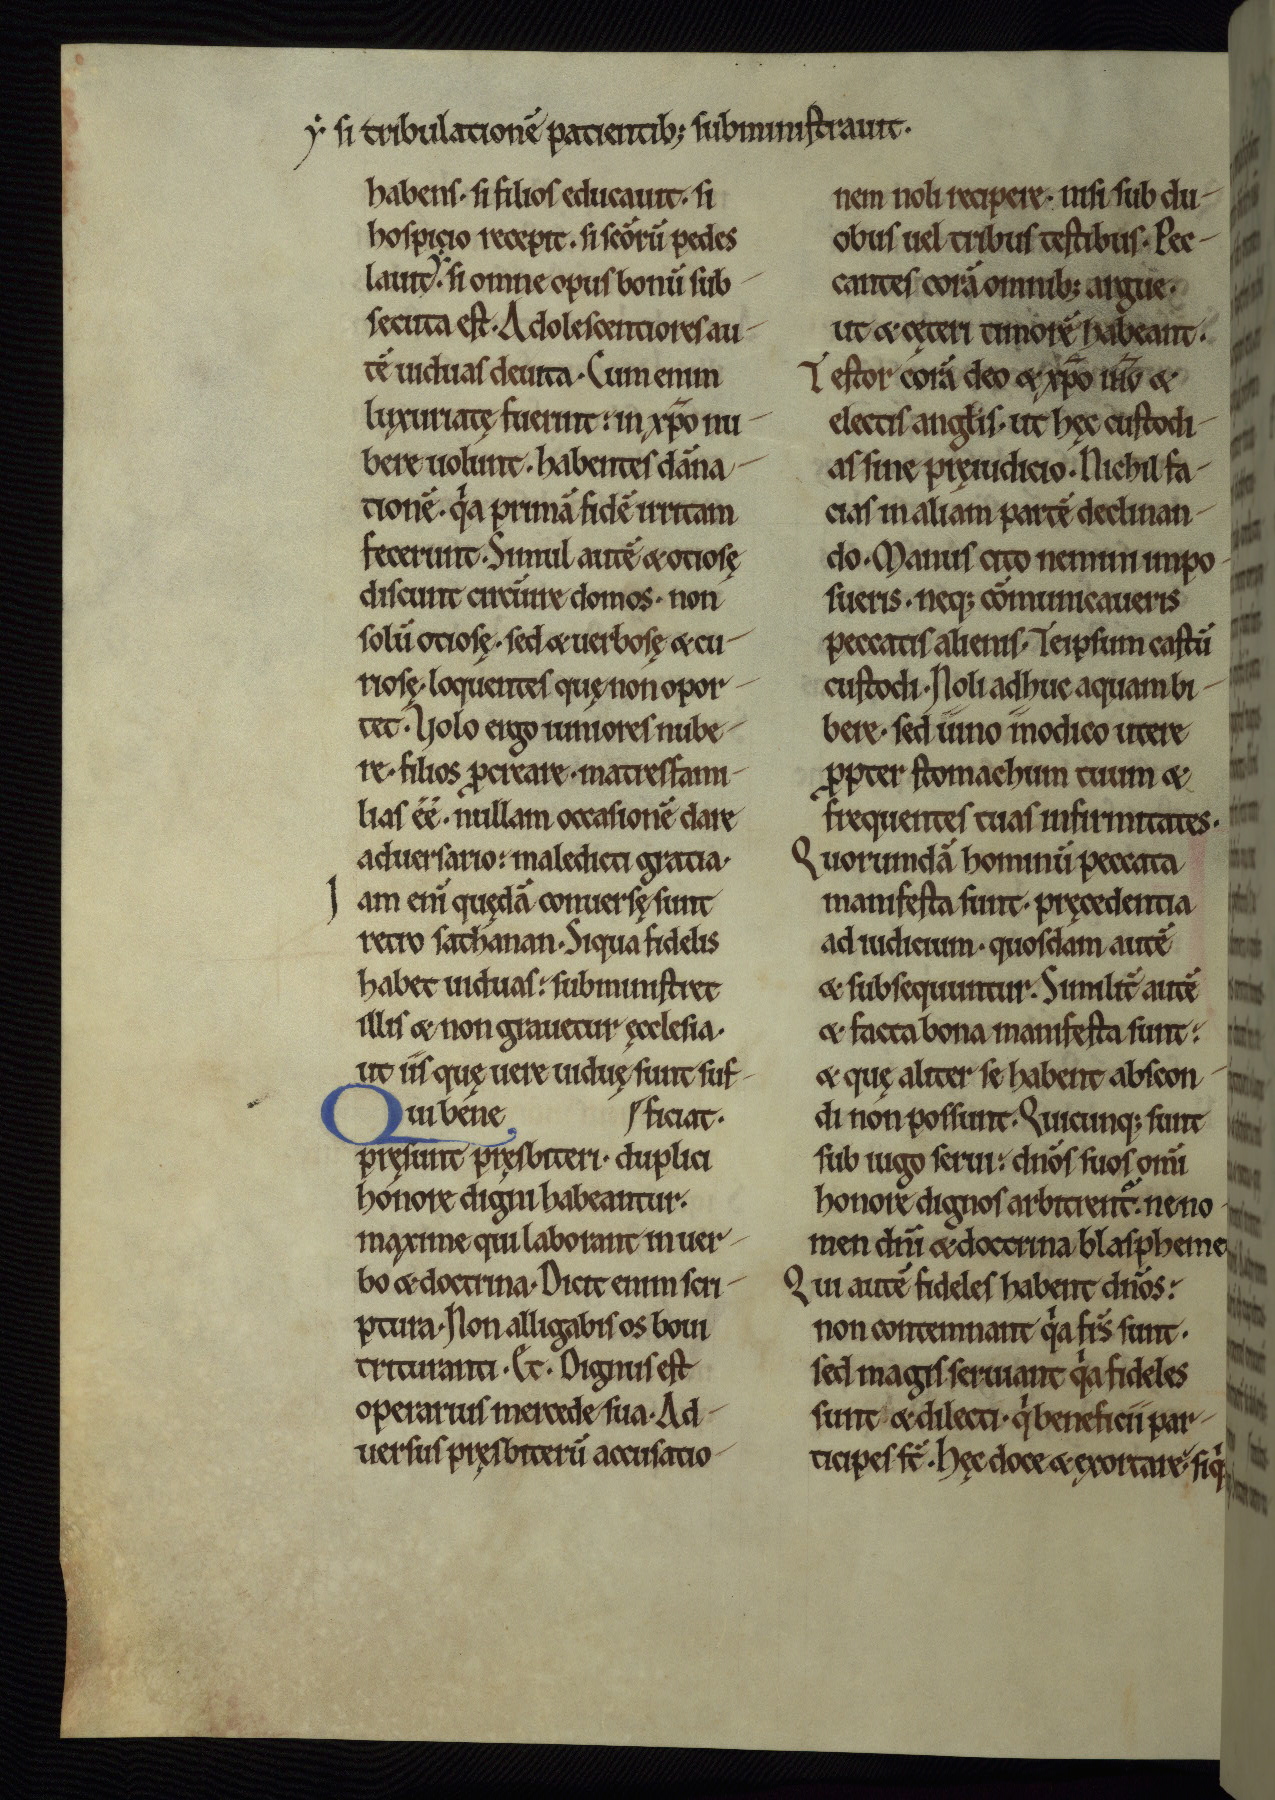 ẏ si tribulationē patientib; subministrauit.
habens. si filios educauit. si
hospicio recepit. si scōrū pedes
lauit ẏ. si omne opus bonū sub-
secuta est. Adolescentiores au-
tē uiduas deuita. Cum enim
luxuriatę fuerint: in xp̄o nu-
bere uolunt. habentes dāna-
tionē. qͥa primā fidē irritam
fecerunt. Simul autē & otiosę
discunt circūire domos. non
solū otiosę. sed & uerbosę & cu-
riosę. loquentes quę non opor-
tet. Uolo ergo iuniores nube-
re. filios ꝓcreare. matresfami-
lias éé. nullam occasionē dare
aduersario: maledicti gratia.
Iam eni̅ quędā conuersę sunt
retro sathanan. Siqua fidelis
habet uiduas: subministret
illis & non grauetur ęcclesia.
ut iis quę uere uiduę sunt suf-
ficiat.
Qui bene
pręsunt pręsbiteri. duplici
honore digni habeantur.
maxime qui laborant in uer-
bo & doctrina. Dicit enim scri-
ptura. Non alligabis os boui
trituranti. Et. Dignus est
operarius mercede sua. Ad-
uersus pręsbiterū accusatio-
nem noli recipere. nisi sub du-
obus uel tribus testibus. Pec-
cantes corā omnib; argue.
ut & cęteri timorē habeant.
Testor corā deo & xp̄o ih̅u &
electis angl̅is. ut hęc custodi-
as sine pręiudicio. Nichil fa-
cias in aliam partē declinan-
do. Manus cito nemini impo-
sueris. neq; cōmunicaueris
peccatis alienis. Teipsum castū
custodi. Noli adhuc aquam bi-
bere. sed uino modico utere
ꝓpter stomachum tuum &
frequentes tuas infirmitates.
Quorundā hominū peccata
manifesta sunt. pręcedentia
ad iudicium. quosdam autē
& subsequuntur. Similit̅ autē
& facta bona manifesta sunt:
& quę aliter se habent abscon-
di non possunt. Quicunq; sunt
sub iugo serui: dn̄os suos om̅i
honore dignos arbitrent̅. ne no-
men dn̅i & doctrina blaspheme
Qui autē fideles habent dn̄os:
non contemnant qͥa fr̅s sunt.
sed magis seruiant qͥa fideles
sunt & dilecti. qͥ beneficii par-
ticipes s̅t. Hęc doce & exortare. siqͥ